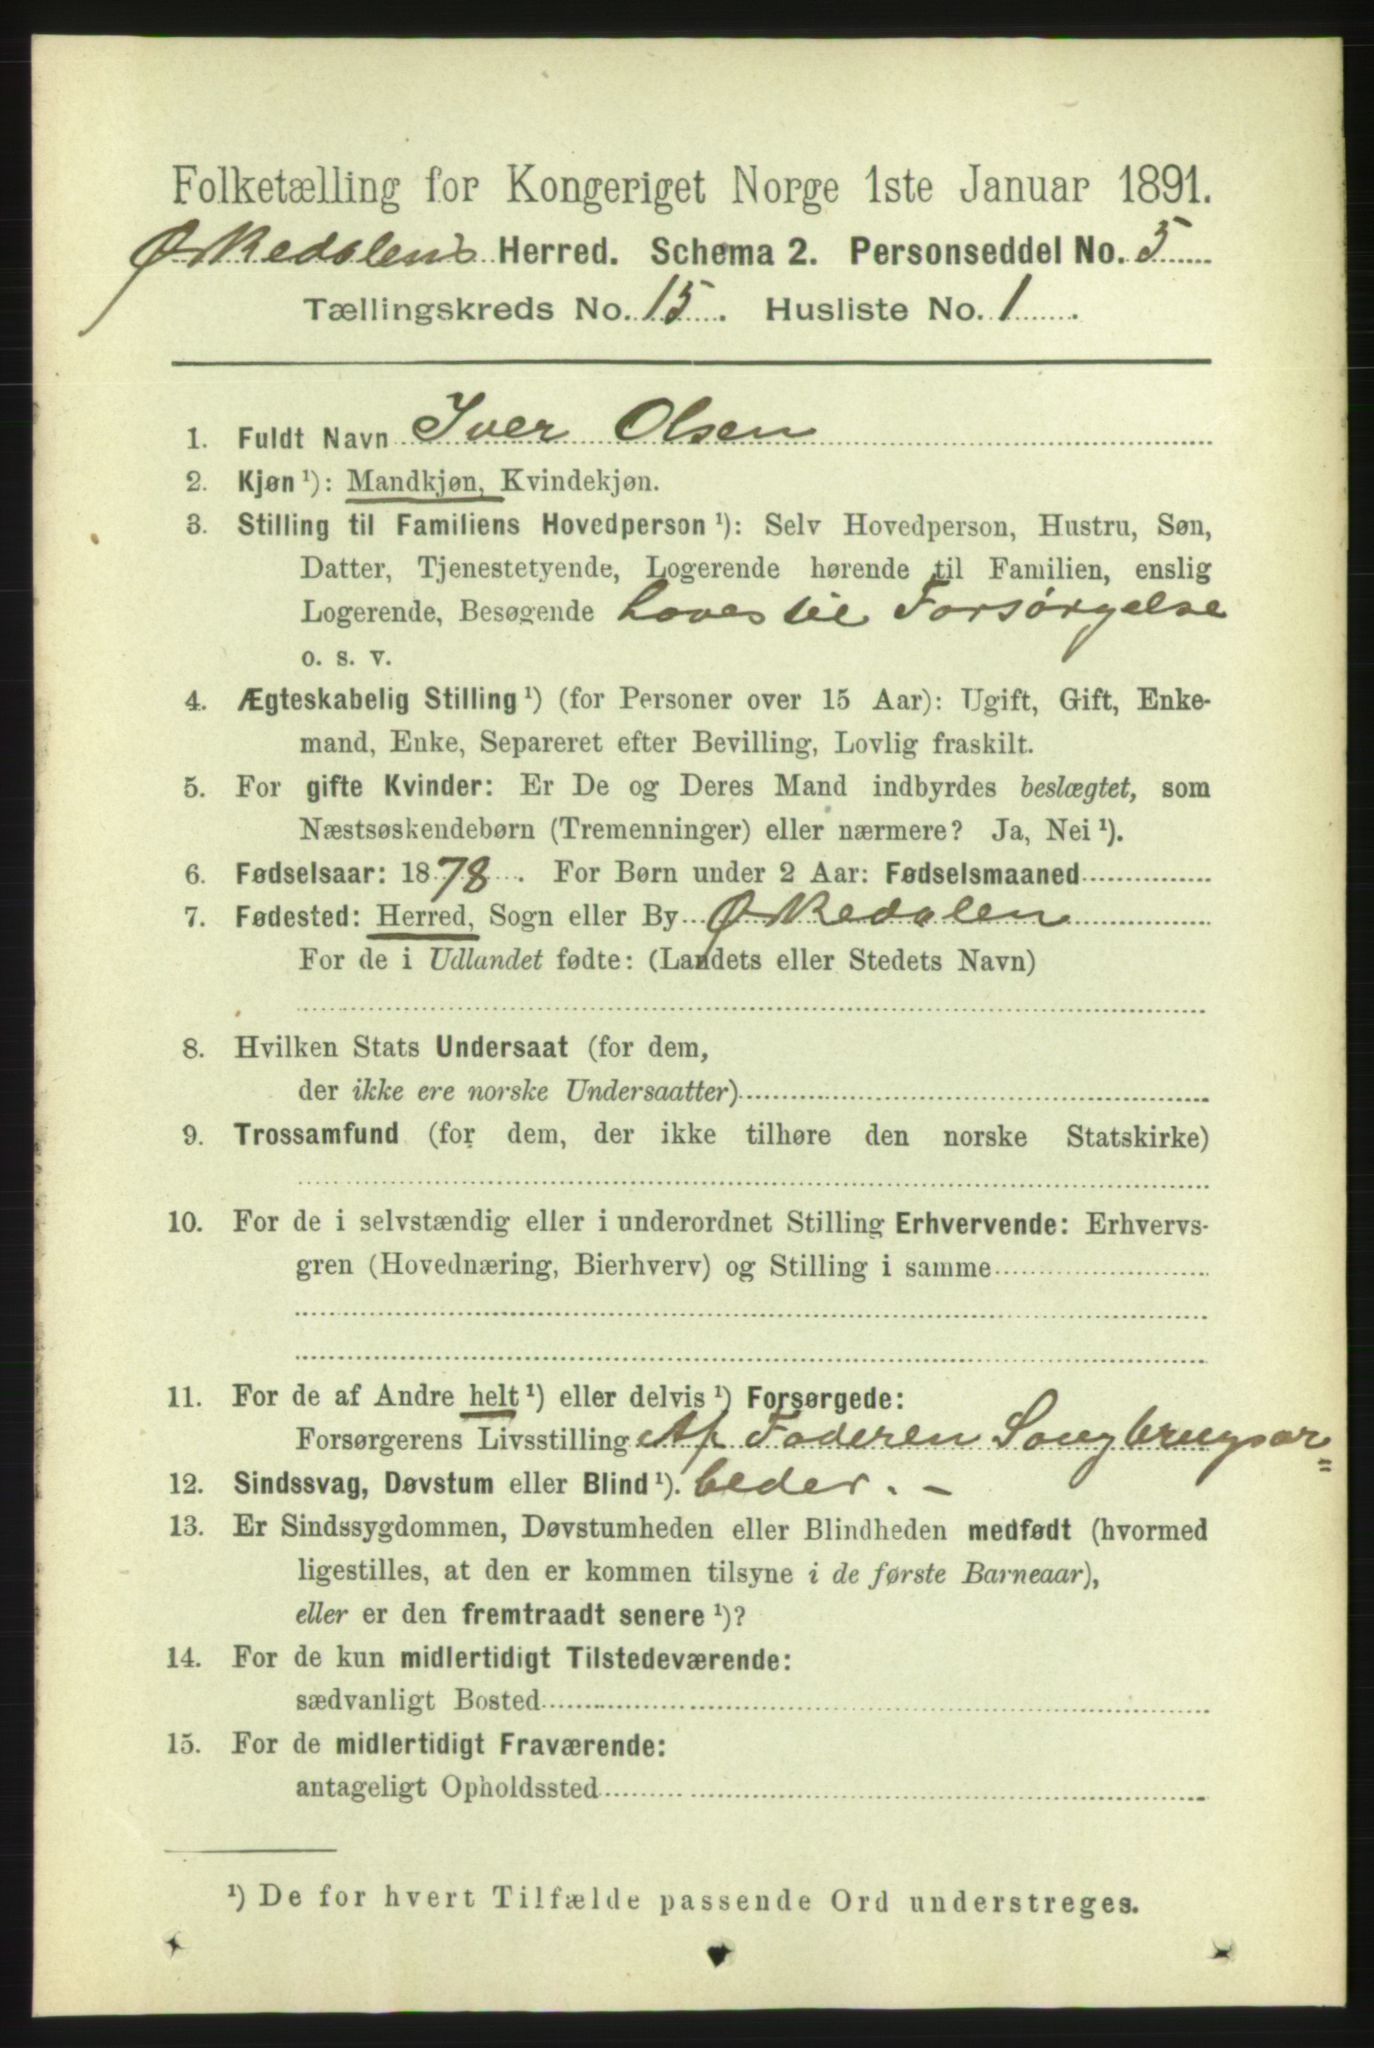 Folketælling for Kongeriget Norge 1ste Januar 1891.
Ørkedalens Herred. Schema 2. Personseddel No. 5
Tællingskreds No. 15. Husliste No. 1.
1. Fuldt Navn Iver Olsen
2. Kjøn ¹): Mandkjøn, Kvindekjøn.
3. Stilling til Familiens Hovedperson ¹): Selv Hovedperson, Hustru, Søn,
Datter, Tjenestetyende, Logerende hørende til Familien, enslig
Logerende, Besøgende haves til Forsørgelse
o. s. v.
4. Ægteskabelig Stilling ¹) (for Personer over 15 Aar): Ugift, Gift, Enke-
mand, Enke, Separeret efter Bevilling, Lovlig fraskilt.
5. For gifte Kvinder: Er De og Deres Mand indbyrdes beslægtet, som
Næstsøskendebørn (Tremenninger) eller nærmere? Ja, Nei ¹).
6. Fødselsaar: 1878. For Børn under 2 Aar: Fødselsmaaned
7. Fødested: Herred, Sogn eller By Ørkedalen
For de i Udlandet fødte: (Landets eller Stedets Navn)
8. Hvilken Stats Undersaat (for dem,
der ikke ere norske Undersaatter)
9. Trossamfund (for dem, der ikke tilhøre den norske Statskirke)
10. For de i selvstændig eller i underordnet Stilling Erhvervende: Erhvervs-
gren (Hovednæring, Bierhverv) og Stilling i samme
11. For de af Andre helt ¹) eller delvis ¹) Forsørgede:
Forsørgerens Livsstilling Af Faderen Saugbrugsar=
12. Sindssvag, Døvstum eller Blind ¹). beder. -
13. Er Sindssygdommen, Døvstumheden eller Blindheden medfødt (hvormed
ligestilles, at den er kommen tilsyne i de første Barneaar),
eller er den fremtraadt senere ¹)?
14. For de kun midlertidigt Tilstedeværende:
sædvanligt Bosted
15. For de midlertidigt Fraværende:
antageligt Opholdssted
¹) De for hvert Tilfælde passende Ord understreges.